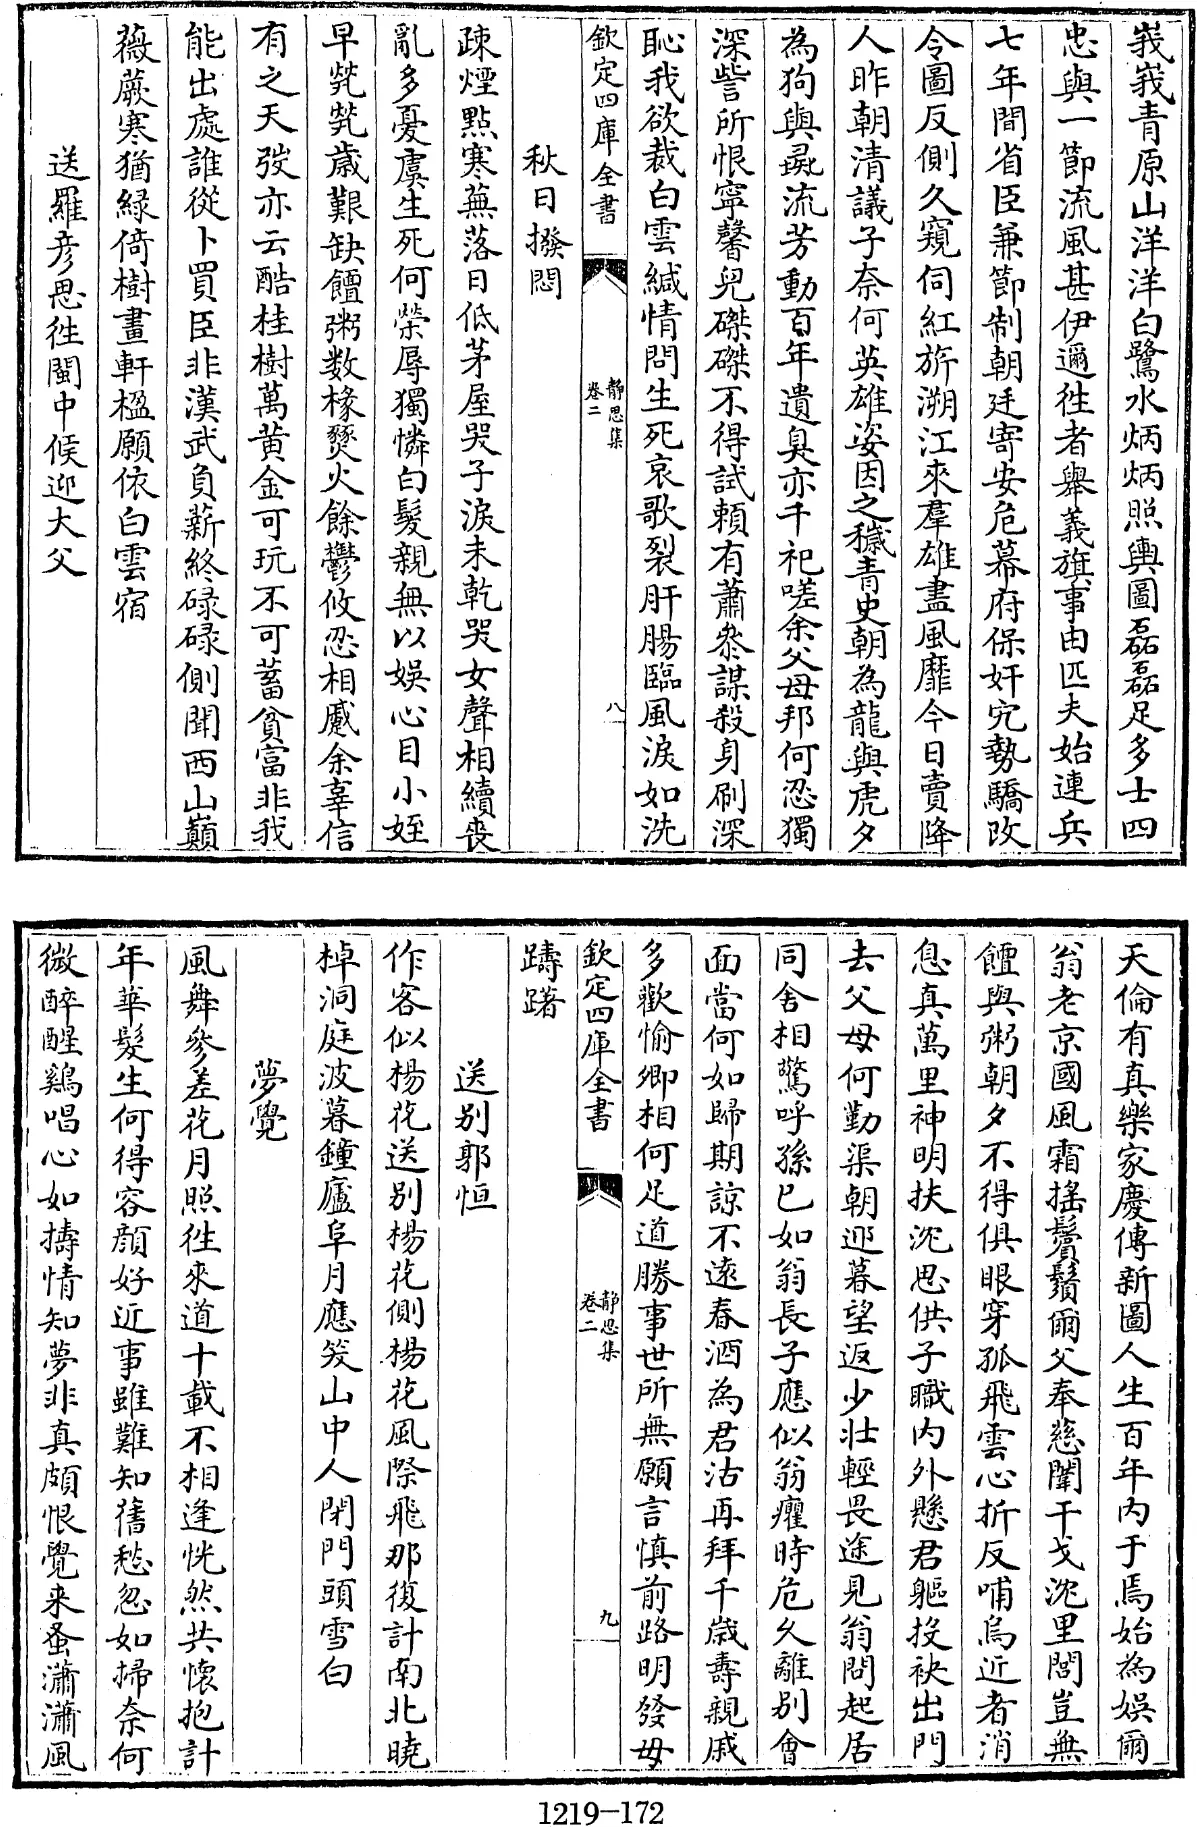 峩峩青原山洋洋白鷺水炳炳照輿圖磊磊足多士四
忠與一節流風甚伊邇徃者舉義旗事由匹夫始連兵
七年間省臣兼節制朝廷寄安危幕府保奸宄勢驕改
令圖反側久窺伺紅斾溯江來羣雄盡風靡今日賣降
人昨朝清議子奈何英雄姿因之穢青史朝為龍與虎夕
為狗與彘流芳動百年遺臭亦千祀嗟余父母邦何忍獨
深訾所恨寧馨兒磔磔不得試頼有蕭叅謀殺身刷深
恥我欲裁白雲緘情問生死哀歌裂肝腸臨風淚如洗
欽定四庫全書
静思集
卷二
八
秋日撥悶
疎煙點寒蕪落日低茅屋哭子淚未乾哭女聲相續喪
亂多憂虞生死何榮辱獨憐白髮親無以娛心目小姪
早煢煢歳艱缺饘粥数椽燹火餘鬱攸忍相慼余辜信
有之天弢亦云酷桂樹萬黄金可玩不可蓄貧富非我
能出處誰從卜買臣非漢武負薪終碌碌側聞西山巔
薇蕨寒猶緑倚樹畫軒楹願依白雲宿
送羅彦思徃閩中候迎大父
天倫有真樂家慶傳新圖人生百年内于焉始為娱爾
翁老京國風霜搖鬢鬚爾父奉慈闈干戈沈里閭豈無
饘與粥朝夕不得俱眼穿孤飛雲心折反哺烏近者消
息真萬里神明扶沈思供子職内外懸君軀投袂出門
去父母何勤渠朝迎暮望返少壯輕畏途見翁問起居
同舍相驚呼孫已如翁長子應似翁癯時危久離别會
面當何如歸期諒不遠春酒為君沽再拜千歳壽親戚
多歡愉卿相何足道勝事世所無願言慎前路明發毋
欽定四庫全書
静思集
卷二
九
躊躇
送别郭恒
作客似楊花送别楊花側楊花風際飛那復計南北曉
棹洞庭波暮鐘廬阜月應笑山中人閉門頭雪白
夢覺
風舞參差花月照徃來道十載不相逢恍然共懷抱計
年華髮生何得容顔好近事雖難知舊愁忽如掃奈何
微醉醒鷄唱心如擣情知夢非真頗恨覺来蚤瀟瀟風
1219-172